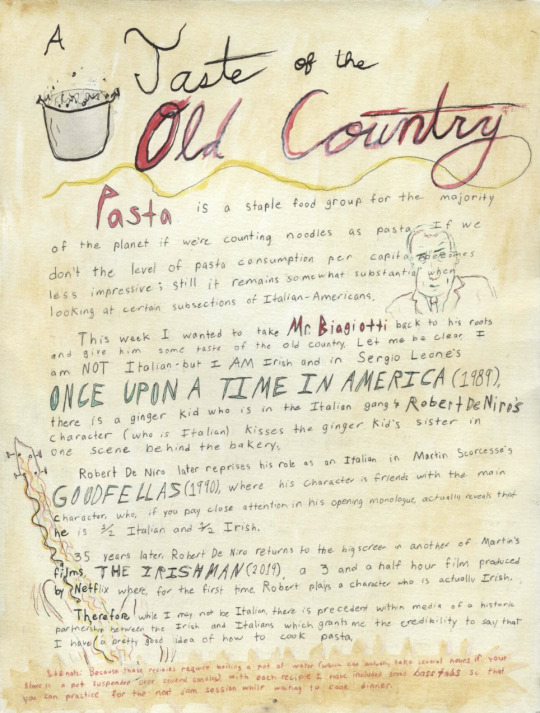 A
Taste of the
Old Country
Pasta is a staple food group for the majority
of the planet if we're counting noodles as pasta. If we
don't the level of pasta consumption per capita becomes
less impressive; still it remains somewhat substantial when
looking at certain subsections of Italian-Americans.
This week I wanted to take Mr. Biagiotti back to his roots
and give him some taste of the old country. Let me be clear, I
am NOT Italian - but I AM Irish and in Sergio Leone's
ONCE UPON A TIME IN AMERICA (1989),
there is a ginger kid who is in the Italian gang & Robert DeNiro's
character (who is Italian) kisses the ginger kid's sister in
one scene behind the bakery.
Robert De Niro later reprises his role as an Italian in Martin Scorcese's
GOODFELLAS (1990), where his character is friends with the main
character, who, if you pay close attention in his opening monologue, actually reveals that
he is ½ Italian and ½ Irish.
35 years later, Robert De Niro returns to the big screen in another of Martin's
films, THE IRISHMAN (2019), a 3 and a half hour film produced
by Netflix where, for the first time, Robert plays a character who is actually Irish.
Therefore, while I may not be Italian, there is precedent within media of a historic
partnership between the Irish and Italians which grants me the credibility to say that
I have a pretty good idea of how to cook pasta.
Because these recipies require boiling a pot of water (which can actually take several hours if your
stove is a pot suspended over several candles) with each recipe I have included some bass tabs so that
you can practice for the next jam session while waiting to cook dinner.